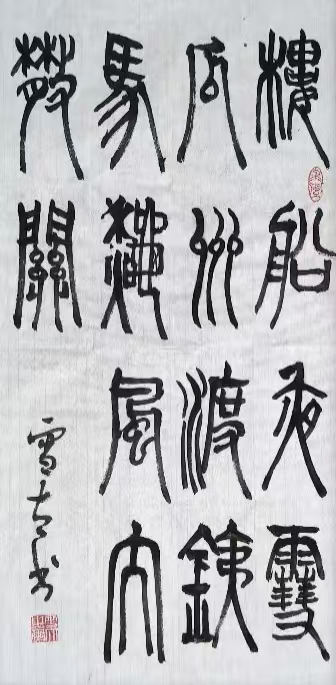 樓船夜雪
瓜州渡銕
馬秋風大
散關
雪书